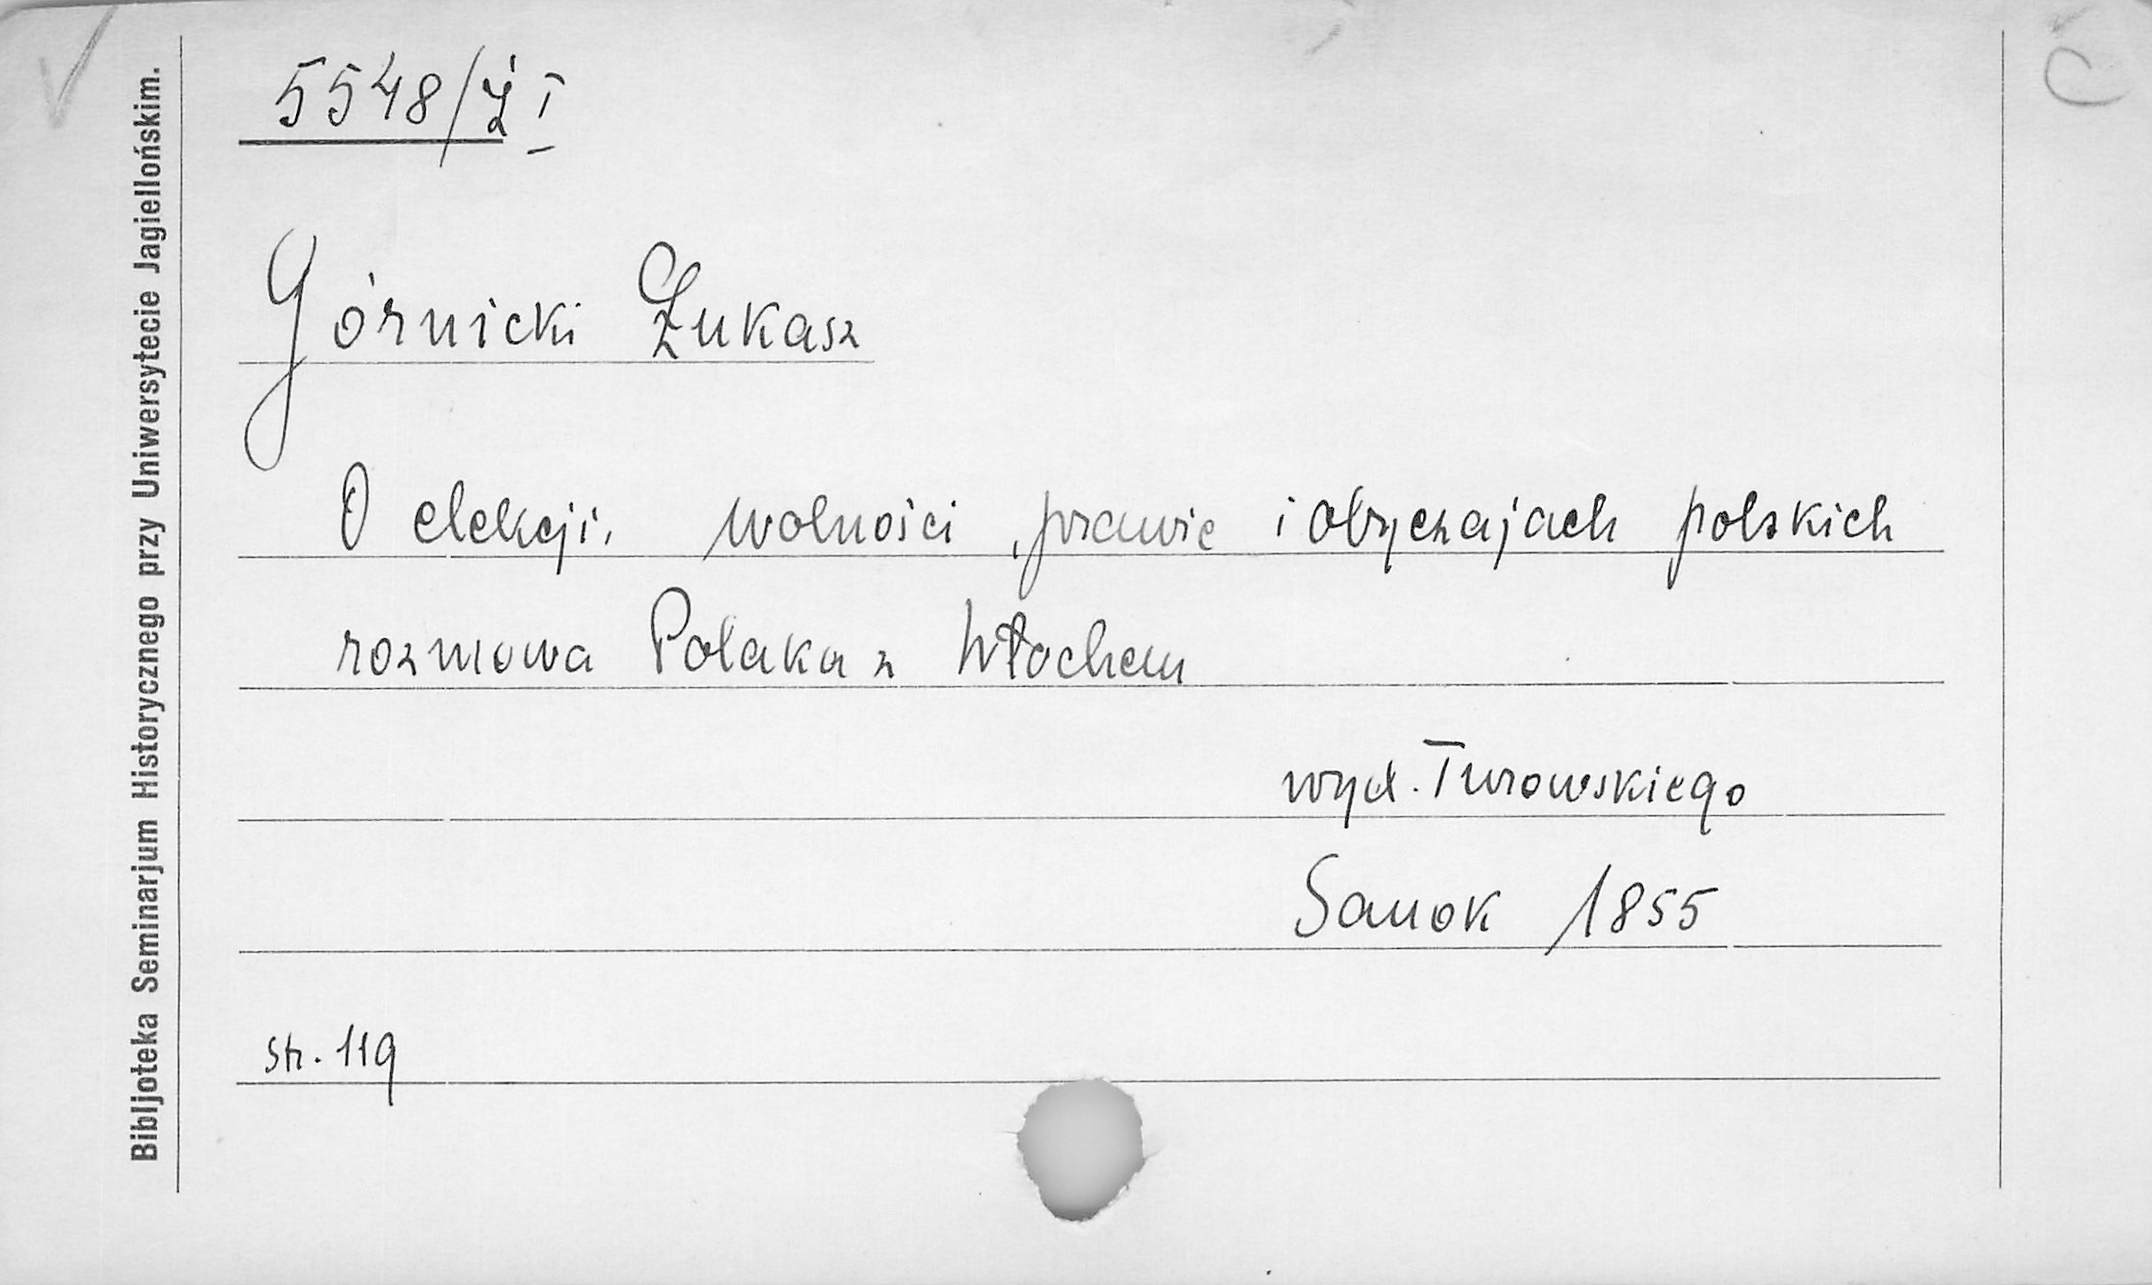 5548/Ż I
Górnicki Łukasz
O elekcji, wolności, prawie i obyczajach polskich
rozmowa Polaka z Włochem
wyd. Turowskiego
Sanok 1855
str. 119
Bibljoteka Seminarjum Historycznego przy Uniwersytecie Jagiellońskim.
C